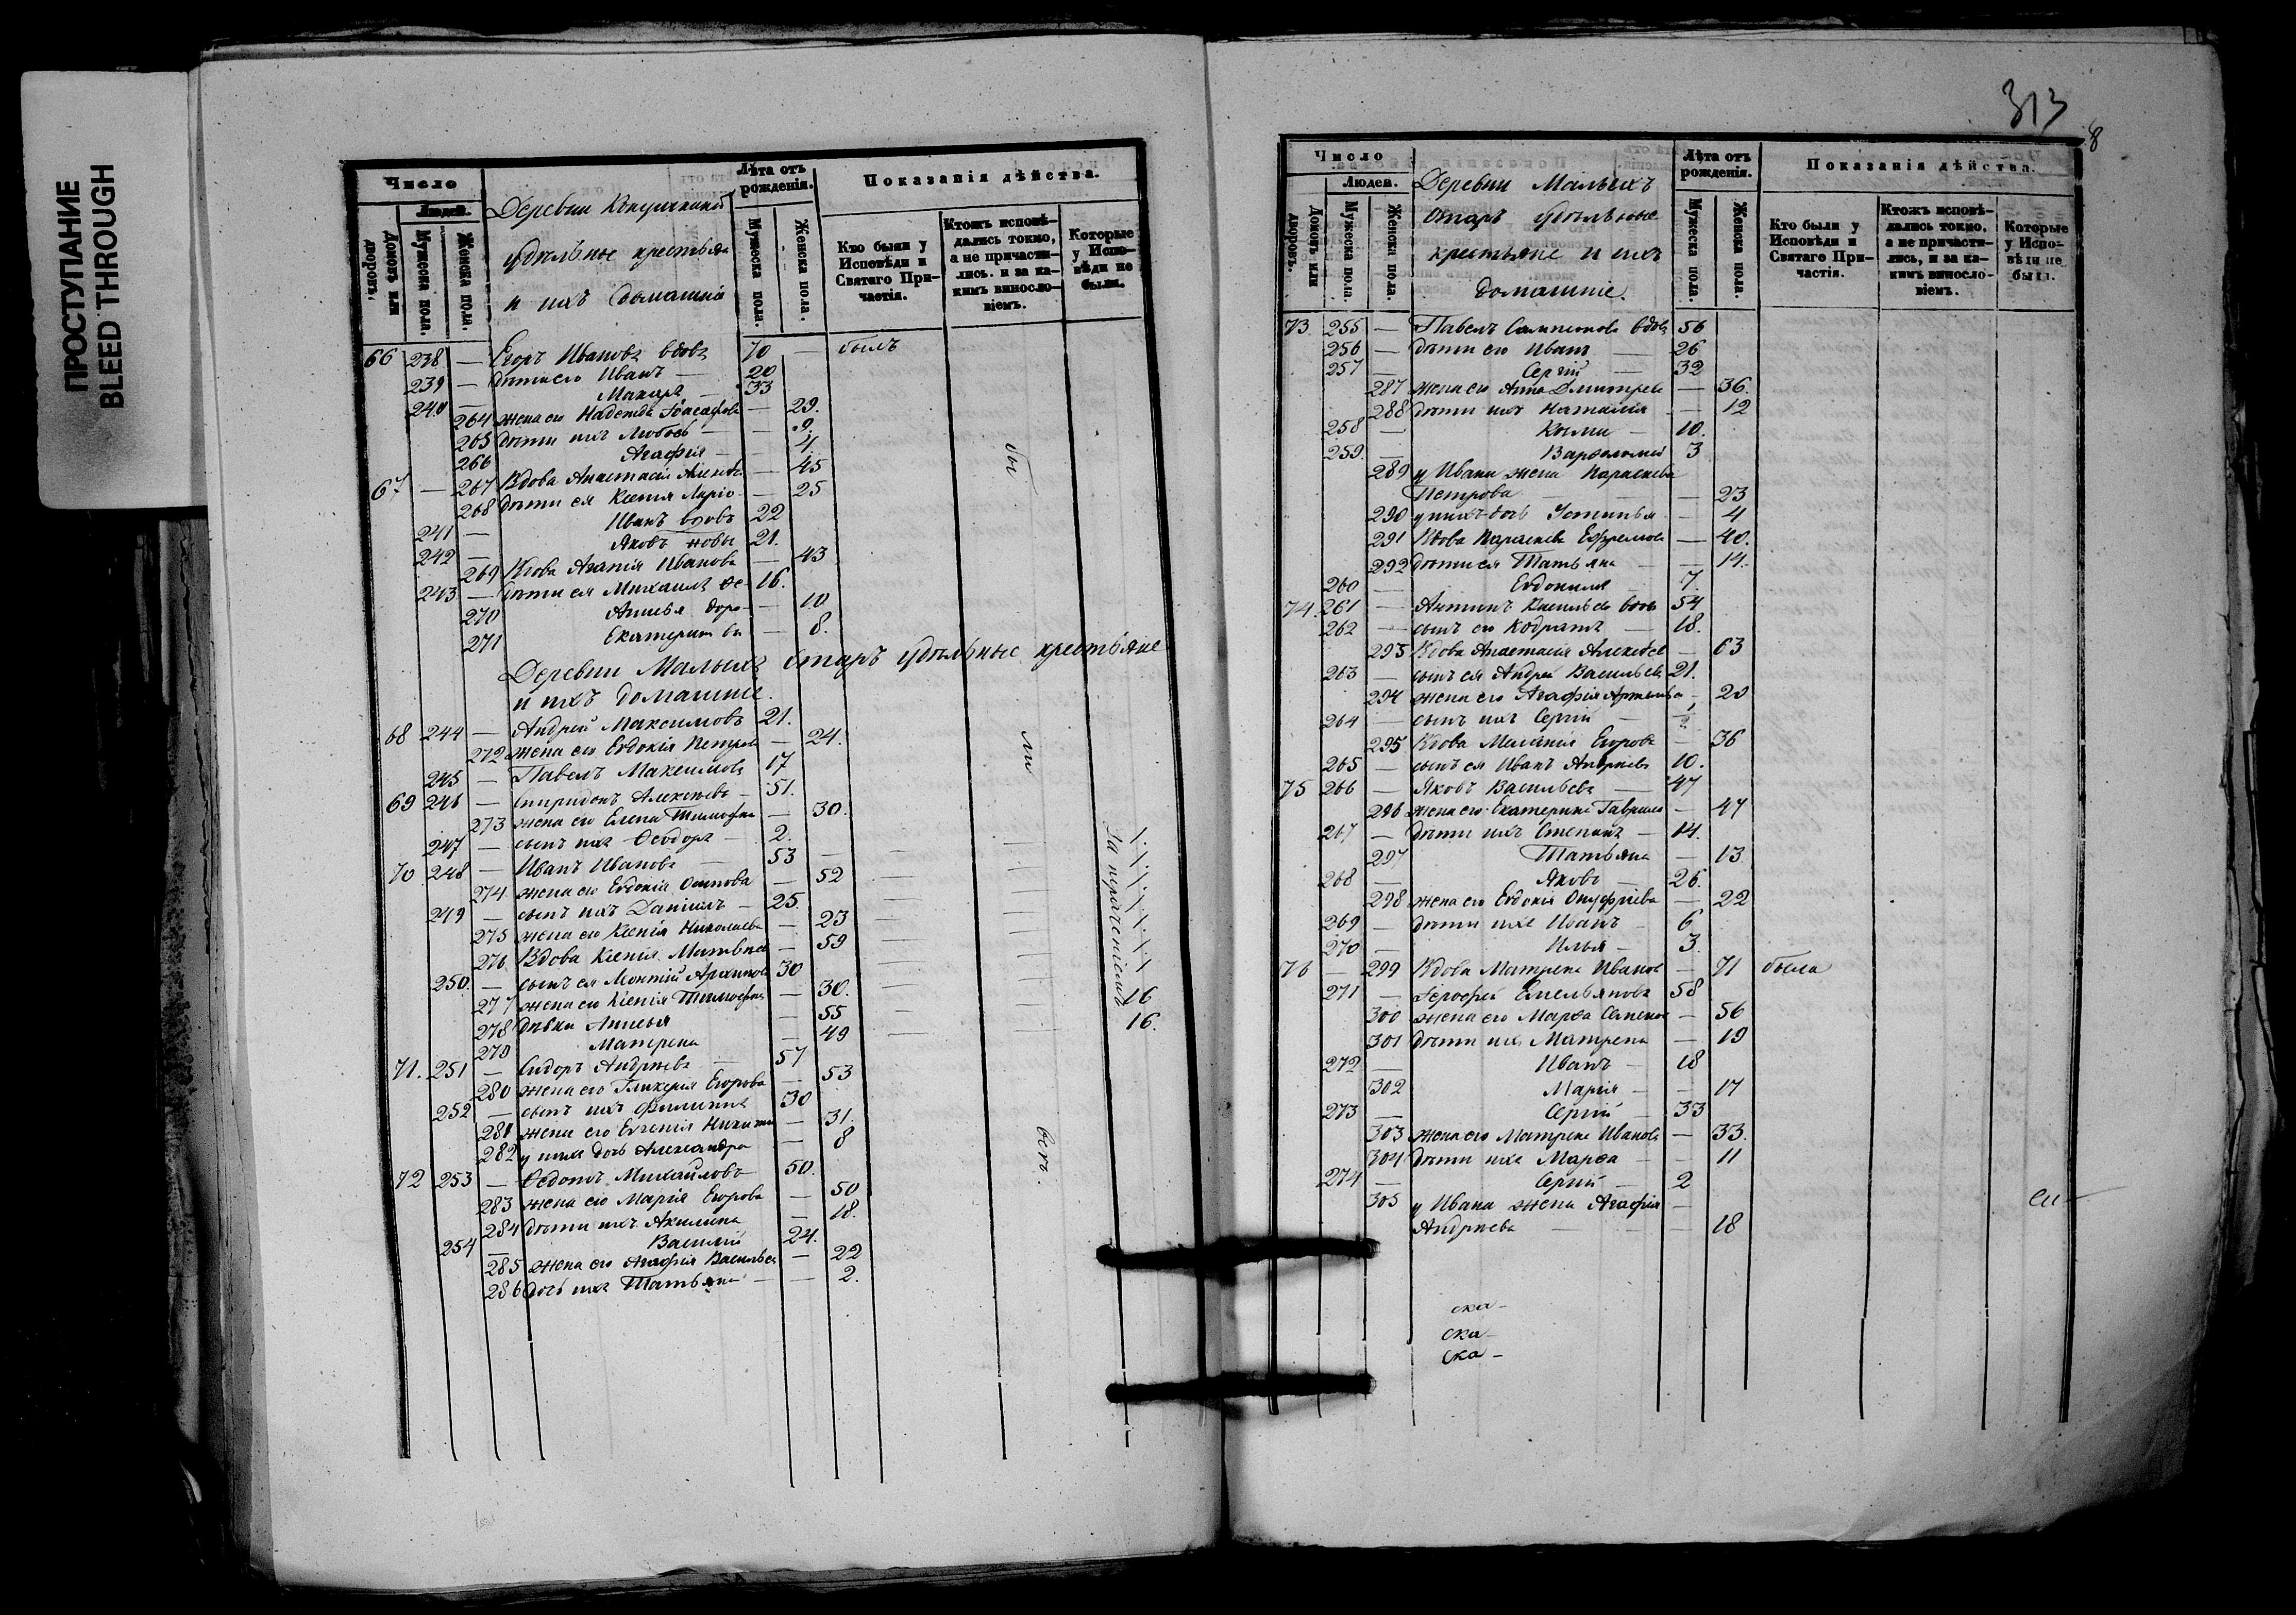 ПРОСТУПАНИЕ
BLEED THROUGH
Число
Людей.
Домовъ или дворовъ.
Мужеска пола.
Женска пола.
Деревни
удѣльные крестьяне
и ихъ домашніе
Лѣта отъ рожденія.
Мужеска пола.
Женска пола.
Показанія дѣйства.
Кто были у Исповѣди и Святаго Причастія.
Ктожъ исповѣдались токмо, а не причастились. и за какимъ винословіемъ.
Которые у Исповѣди не были.
66 238 — Егоръ Ивановъ вдовъ 70 — былъ
239 — дѣти его Иванъ — 20
240 — Макаръ — 33
264 жена его Надежда Іоасафова — 29.
265 дѣти ихъ Любовь — — 9.
266 Агафія — — 4
67 — 267 Вдова Анастасія — 45
268 дѣти ея Ксенія — 25
241 — Иванъ вдовъ 22
242 — Яковъ 21.
269 Вдова Агапія Иванова — 43
243 — дѣти ея Михаилъ 16.
270 Анисья — 10
271 Екатерина — 8.
Деревни Малыхъ Отаръ удѣльные крестьяне
и ихъ домашніе.
68 244 — Андрей Максимовъ 21.
272 жена его Евдокія Петрова — 24.
245 — Павелъ Максимовъ 17
69 246 — Спиридонъ Алексѣевъ — 51.
273 жена его Елена Тимофѣева — 30.
247 — сынъ ихъ Ѳеодоръ — 2.
70 248 — Иванъ Ивановъ — 53 —
274 жена его Евдокія Осипова — 52
249 — сынъ ихъ Даніилъ — 25.
275 жена его Ксенія Николаева — 23
276 Вдова Ксенія Матвѣева — 59
250. — сынъ ея Архиповъ 30
277 жена его Ксенія Тимофѣева — 30.
278 дѣвки Анисья — 55
279 Матрена — 49
71. 251 — Сидоръ Андреевъ — 57
280 жена его Гликерія Егорова — 53
252 — сынъ ихъ Филиппъ 30
281 жена его Евгенія Никитина — 31.
282 у нихъ дочь Александра — 8
72 253 — Ѳедотъ Михайловъ 50.
283 жена его Марія Егорова — 50
284 дѣти ихъ Акилина — 18.
254 — Василій 24.
285 жена его Агафія Васильева — 22
286 дочь ихъ Татьяна — — 2.
бы
ли
всѣ.
За нераченіемъ
16
16.
313
8
Число
Людей.
Домовъ или дворовъ.
Мужеска пола.
Женска пола.
Деревни Малыхъ
Отаръ удѣльные
крестьяне и ихъ
домашніе.
Лѣта отъ рожденія.
Мужеска пола.
Женска пола.
Показанія дѣйства.
Кто были у Исповѣди и Святаго Причастія.
Ктожъ исповѣдались токмо, а не причастились, и за какимъ винословіемъ.
Которые у Исповѣди не были.
73 255 — Павелъ Сампсоновъ вдовъ 56
256 — дѣти его Иванъ — 26
257 — Сергій — 32
287 жена его Анна Дмитріева — 36.
288 дѣти ихъ Наталія — 12
258 — Козма — 10.
259. — Варѳоломей 3
289 у Ивана жена Параскева
Петрова — — 23
290 у нихъ дочь Устинья — 4
291 Вдова Параскева Ефремова — 40.
292 дѣти ея Татьяна — — 14.
260 — Евдокимъ — 7.
74. 261 — Антипъ Васильевъ вдовъ 54
262 — сынъ его Кодратъ — 18.
293 Вдова Анастасія Алексѣева — 63
263 — сынъ ея Андрей Васильевъ 21.
294 жена его Агафія Артемьева — 20
264 — сынъ ихъ Сергій —
295 Вдова Маланія Егорова — 36
265 — сынъ ея Иванъ Андреевъ 10.
75 266 — Яковъ Васильевъ — 47
296 жена его Екатерина Гаврилова — 47
267 — дѣти ихъ Степанъ — 14.
297 Татьяна — 13
268 — Яковъ — 26.
298 жена его Евдокія Онуфріева — 22
269 — дѣти ихъ Иванъ — 6
270 — Илья — 3.
76 — 299 Вдова Матрена Иванова — 71 была
271 — Іероѳей Емельяновъ 58
300 жена его Марѳа Семенова — 56
301 дѣти ихъ Матрена — 19
272 — Иванъ — 18
302 Марія — — 17
273 — Сергій — 33
303 жена его Матрена Иванова — 33.
304 дѣти ихъ Марѳа — — 11
274 — Сергій — 2
305 у Ивана жена Агафія —
Андреева — — 18
ска-
ска-
ска-